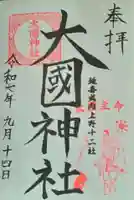 奉拝
大國神社
延喜式内上野十二社
令和七年九月十四日